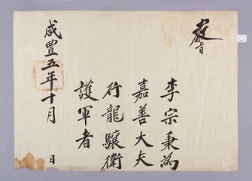 敎旨
李宗秉爲
嘉善大夫
行龍驤衛
護軍者
咸豊五年十月 日